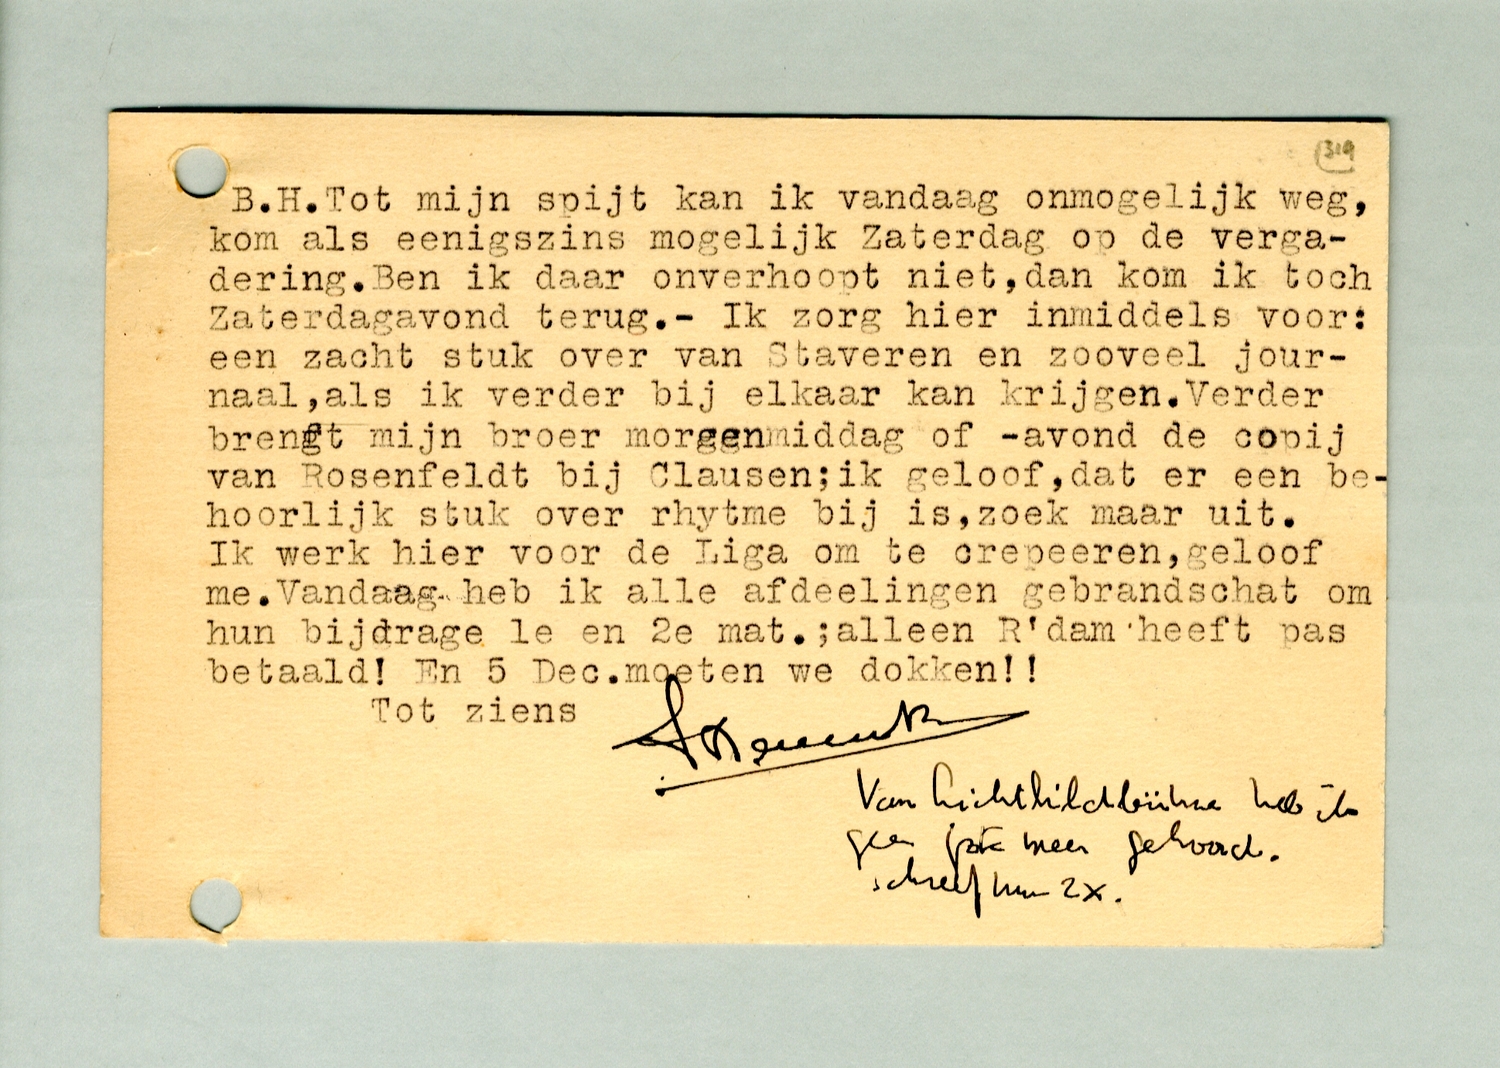 319
B.H.Tot mijn spijt kan ik vandaag onmogelijk weg,
kom als eenigszins mogelijk Zaterdag op de verga-
dering.Ben ik daar onverhoopt niet,dan kom ik toch
Zaterdagavond terug.- Ik zorg hier inmiddels voor:
een zacht stuk over van Staveren en zooveel jour-
naal,als ik verder bij elkaar kan krijgen.Verder
brengt mijn broer morgenmiddag of -avond de copij
van Rosenfeldt bij Clausen;ik geloof,dat er een be-
hoorlijk stuk over rhytme bij is,zoek maar uit.
Ik werk hier voor de Liga om te crepeeren,geloof
me.Vandaag heb ik alle afdeelingen gebrandschat om
hun bijdrage 1e en 2e mat.;alleen R'dam heeft pas
betaald! En 5 Dec.moeten we dokken!!
Tot ziens
Van Lichtbildbühne heb ik
geen meer gehoord.
schreef hun 2x.